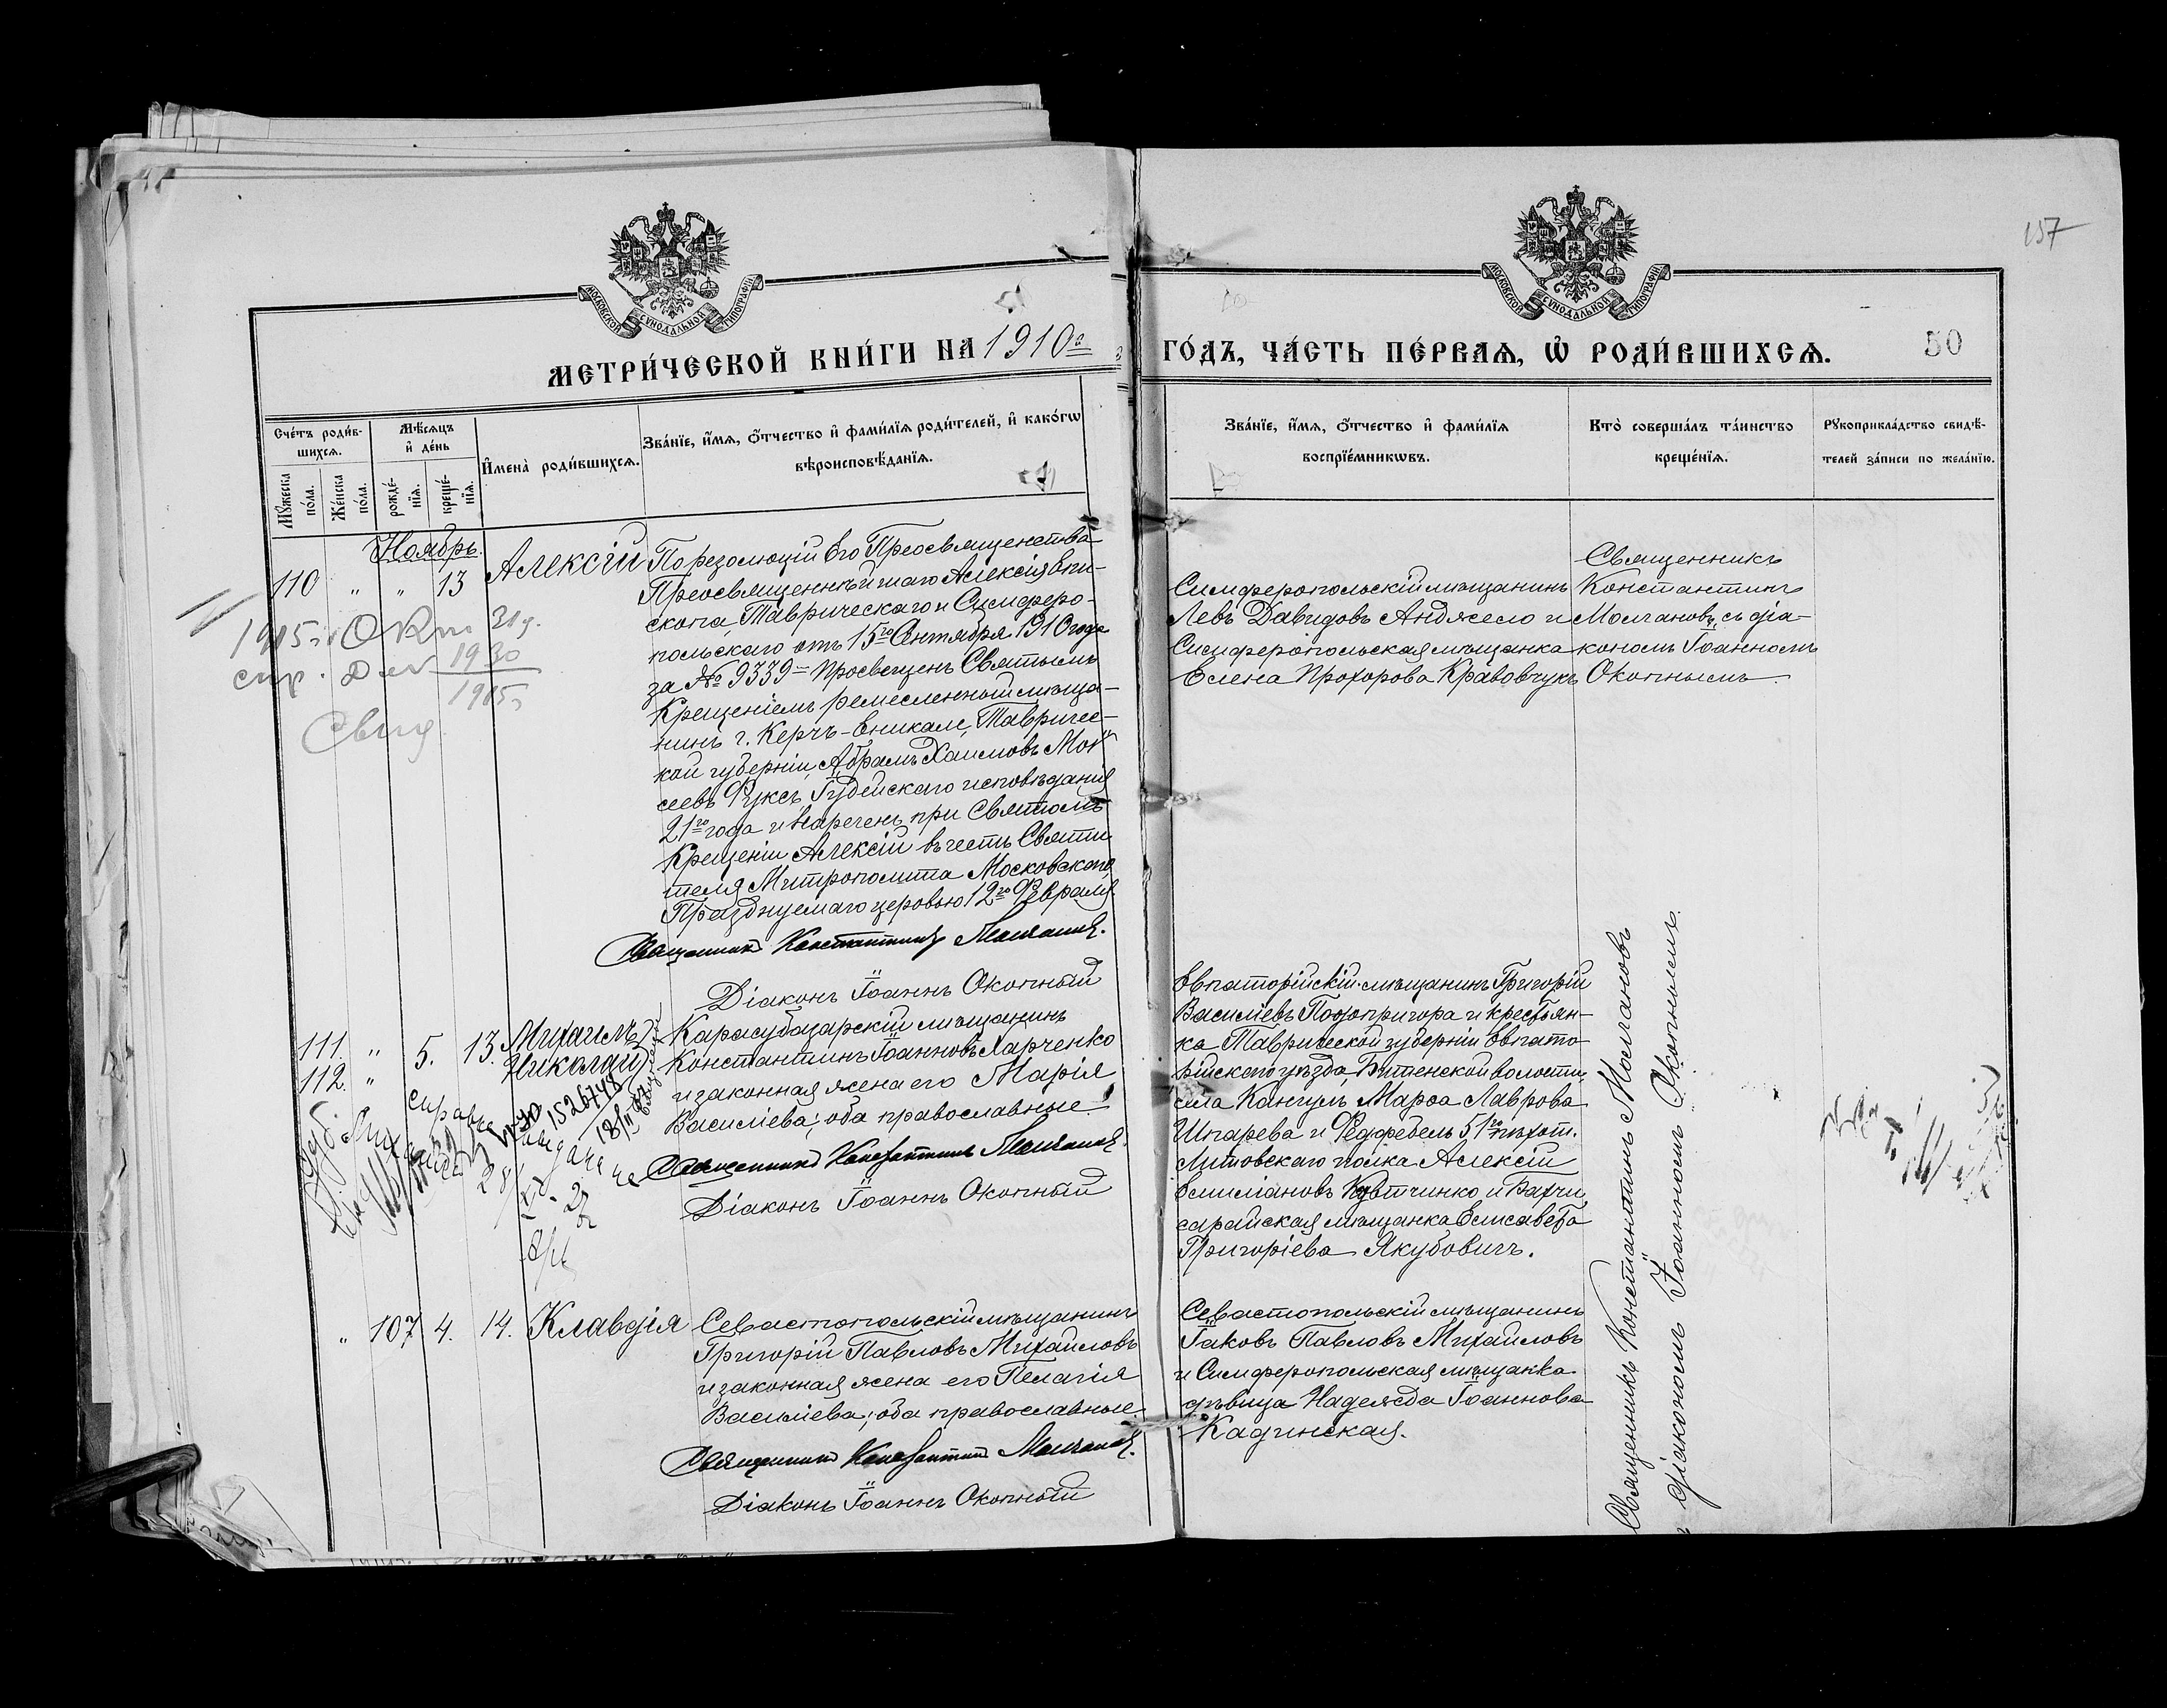 МОСКОВСКОЙ СѴНОДАЛЬНОЙ ТИПОГРАФІИ
МОСКОВСКОЙ СѴНОДАЛЬНОЙ ТИПОГРАФІИ
157
МЕТРИ́ЧЕСКОЙ КНИ́ГИ НА 1910й
ГО́ДЪ, ЧА́СТЬ ПЕ́РВАѦ, Ѡ҆ РОДИ́ВШИХСѦ.
50
Сче́тъ роди́в-
шихсѧ.
Мꙋ́жеска по́ла.
Же́нска по́ла.
Мѣ́сѧцъ
и҆ де́нь
рожде́-нїѧ.
креще́-нїѧ.
И҆мена̀ роди́вшихсѧ.
Зва́нїе, и҆́мѧ, ѻ҆́тчество и҆ фами́лїѧ роди́телей, и҆ како́гѡ
вѣроисповѣ́данїѧ.
Зва́нїе, и҆́мѧ, ѻ҆́тчество и҆ фами́лїѧ
воспрїе́мникѡвъ.
Кто̀ соверша́лъ та́инство
креще́нїѧ.
Рꙋкоприкла́дство свидѣ́-
телей за́писи по жела́нїю.
Ноябрь.
110 " " 13 Алексій
По резолюціи Его Преосвященства
Преосвященнѣйшаго Алексія Епи-
скопа, Таврическаго и Симферо-
польскаго отъ 15го Сентября 1910 года
за № 9339 - просвещенъ Святымъ
Крещеніемъ ремесленный мѣща-
нинъ г. Керчь-Еникале, Тавричес-
кой губерніи, Абрамъ Хаимовъ Мой
сеевъ Фуксъ, Іудейскаго исповѣданія
21го года и нареченъ при Святомъ
Крещеніи Алексій въ честь Святи
теля Митрополита Московскаго
Празднуемаго церовью 12го Февраля.
Священникъ Константинъ Молчановъ.
Діаконъ Іоаннъ Окопный
Симферопольскій мѣщанинъ
Левъ Давидовъ Анджело и
Симферопольская мѣщанка
Елена Прохорова Кравовчукъ
Священникъ
Константинъ
Молчановъ, съ діа-
кономъ Іоанномъ
Окопнымъ.
1930
Свид
111. " 5. 13. Михаилъ
112. " Николай
Карасубазарскій мѣщанинъ
Константинъ Іоанновъ Харченко
и законная жена его Марія
Василіева; оба православные.
Священникъ Константинъ Молчановъ.
Діаконъ Іоаннъ Окопный
Справка
1526748
Евпаторійскій мѣщанинъ Григорій
Василіевъ Подопригора и крестьян-
ка Таврической губерніи Евпато
рійскаго уѣзда, Бютенской волости,
села Кангулъ Марѳа Лаврова
Шпарева и Федфебель 51го пѣхот.
Литовскаго полка Алексій
Емиліановъ и Бахчи
сарайская мѣщанка Елисавета
Григоріева Якубовичъ.
Священникъ Константинъ Молчановъ
съ діакономъ Іоанномъ Окопнымъ.
" 107 4. 14. Клавдія
Севастопольскій мѣщанинъ
Григорій Павловъ Михайловъ
и законная жена его Пелагія
Василіева; оба православные.
Священникъ Константинъ Молчановъ.
Діаконъ Іоаннъ Окопный
Севастопольскій мѣщанинъ
Іаковъ Павловъ Михайловъ
и Симферопольская мѣщанка
дѣвица Надежда Іоаннова
Кадинская.